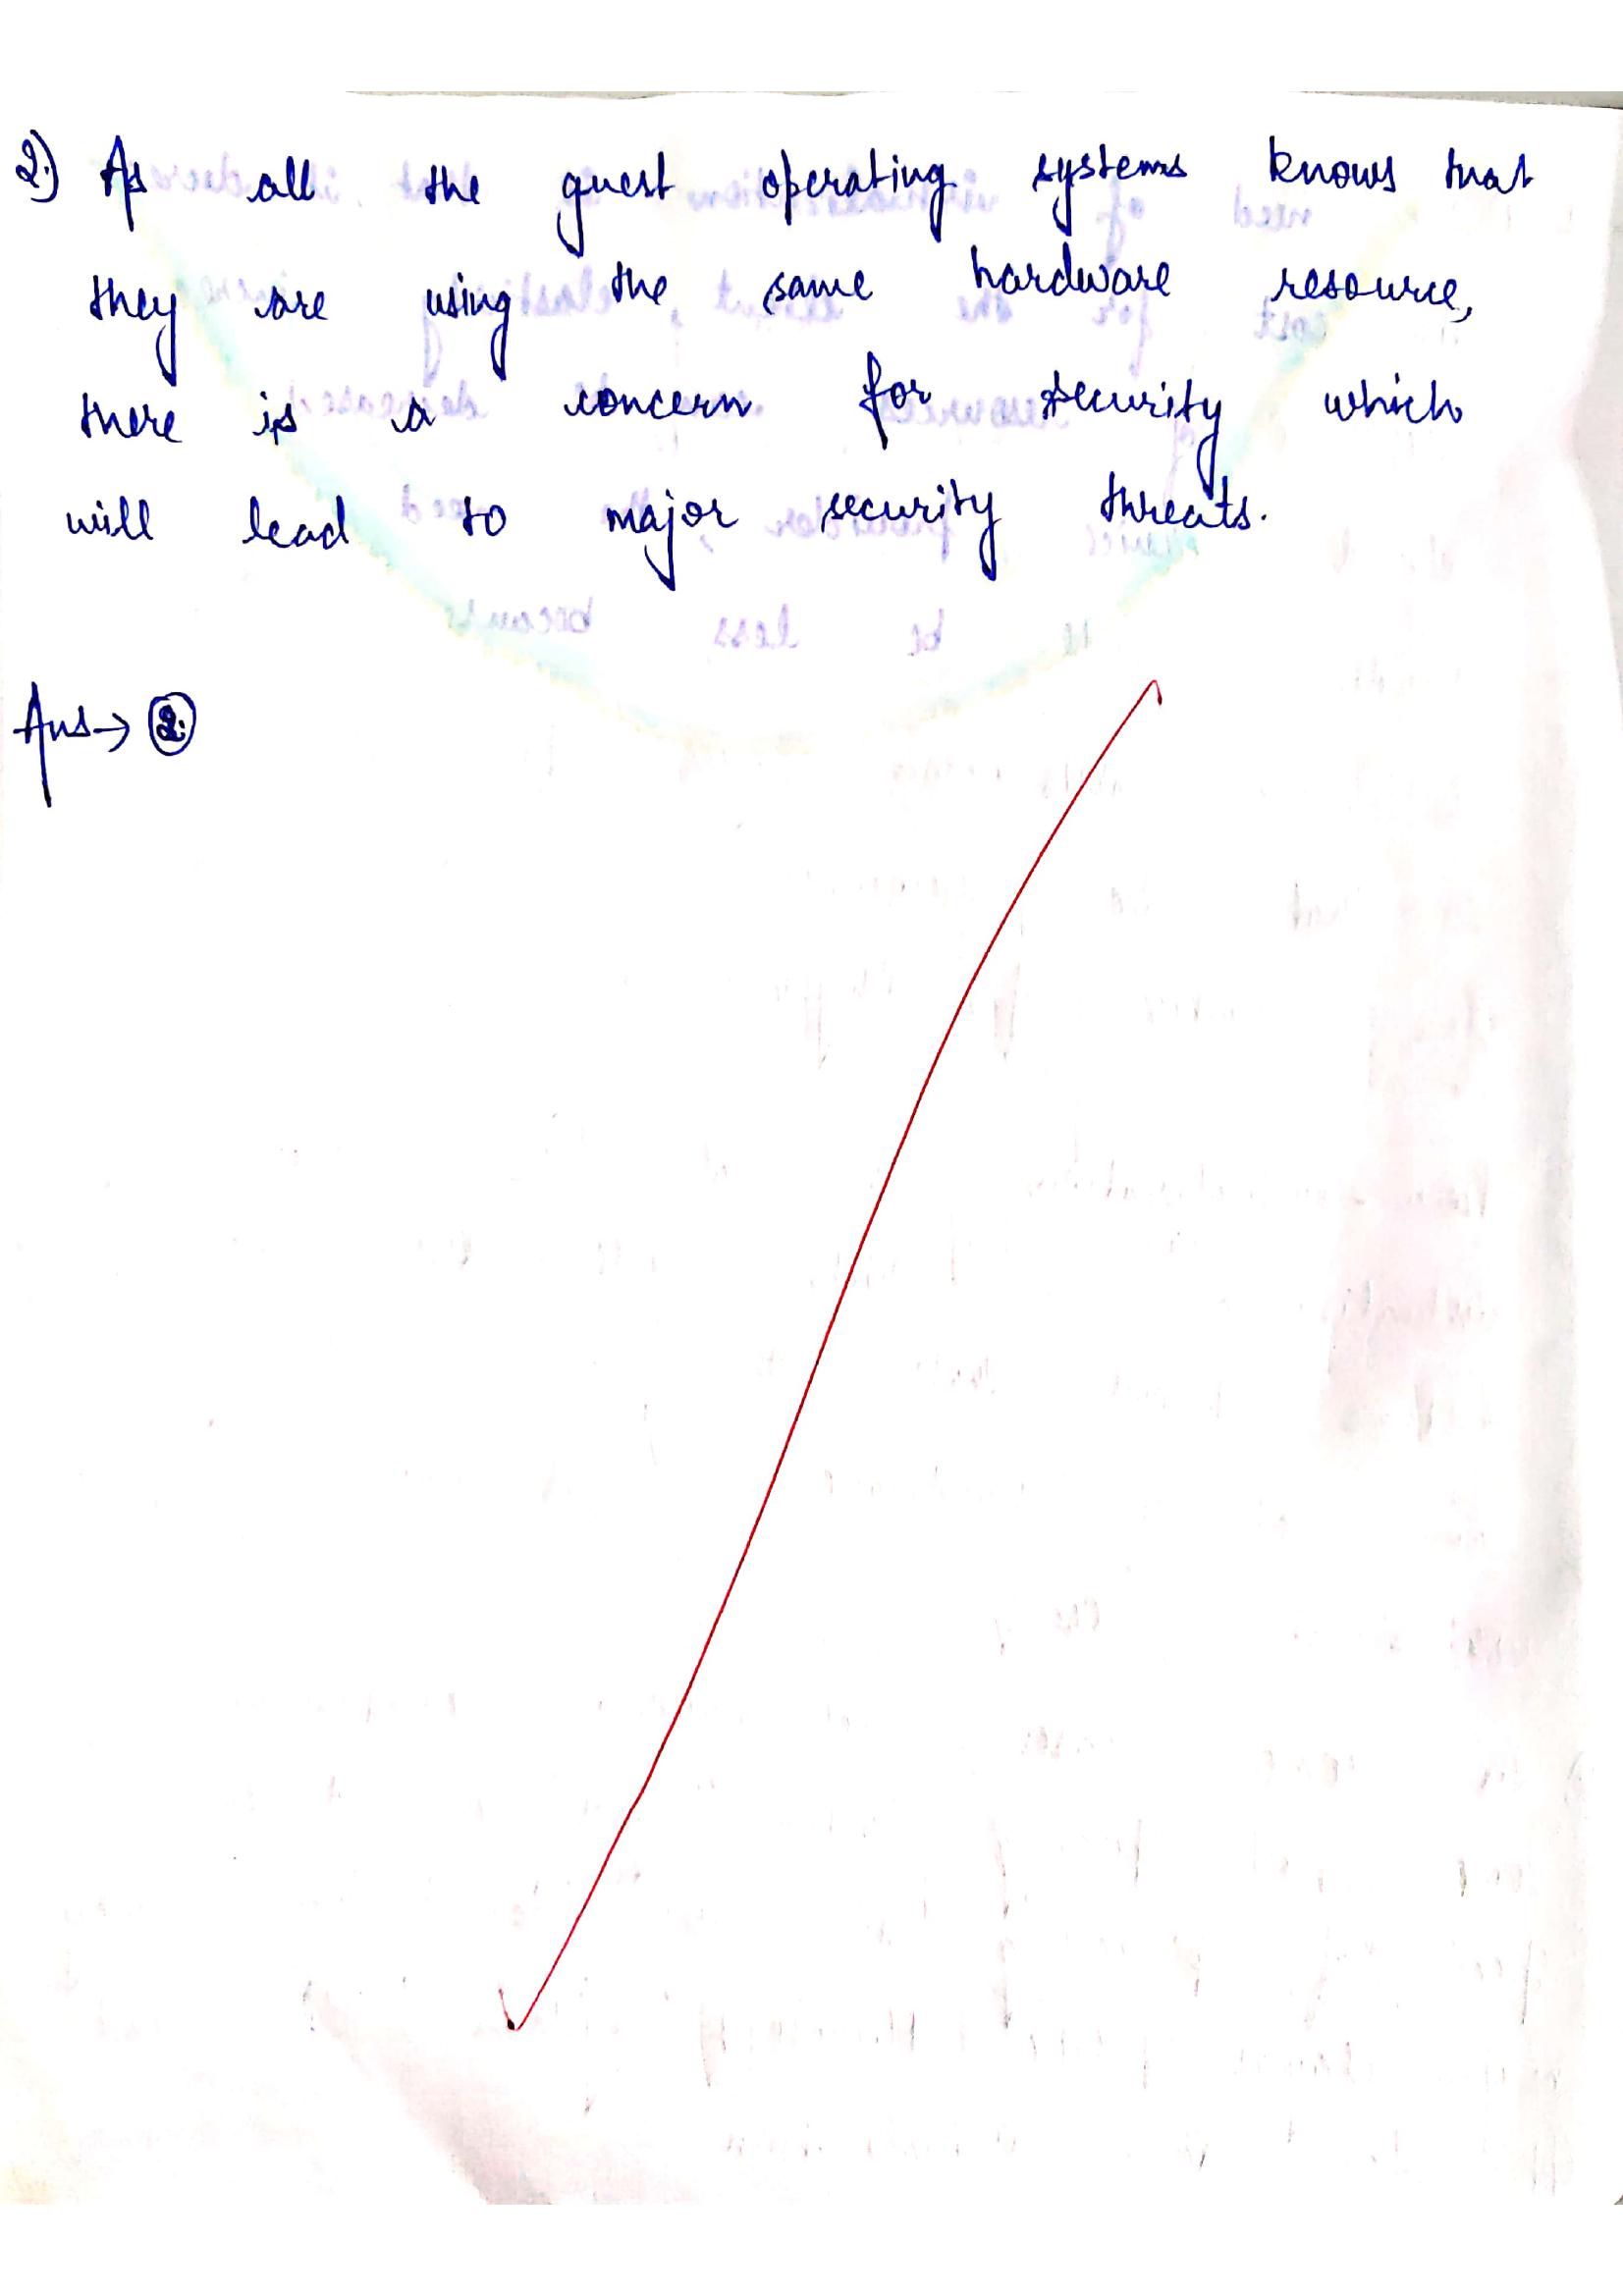 2) As all the guest operating systems knows that
they are using the same hardware resource,
there is a concern for security which
will lead to major security threats.
Ans → 2.